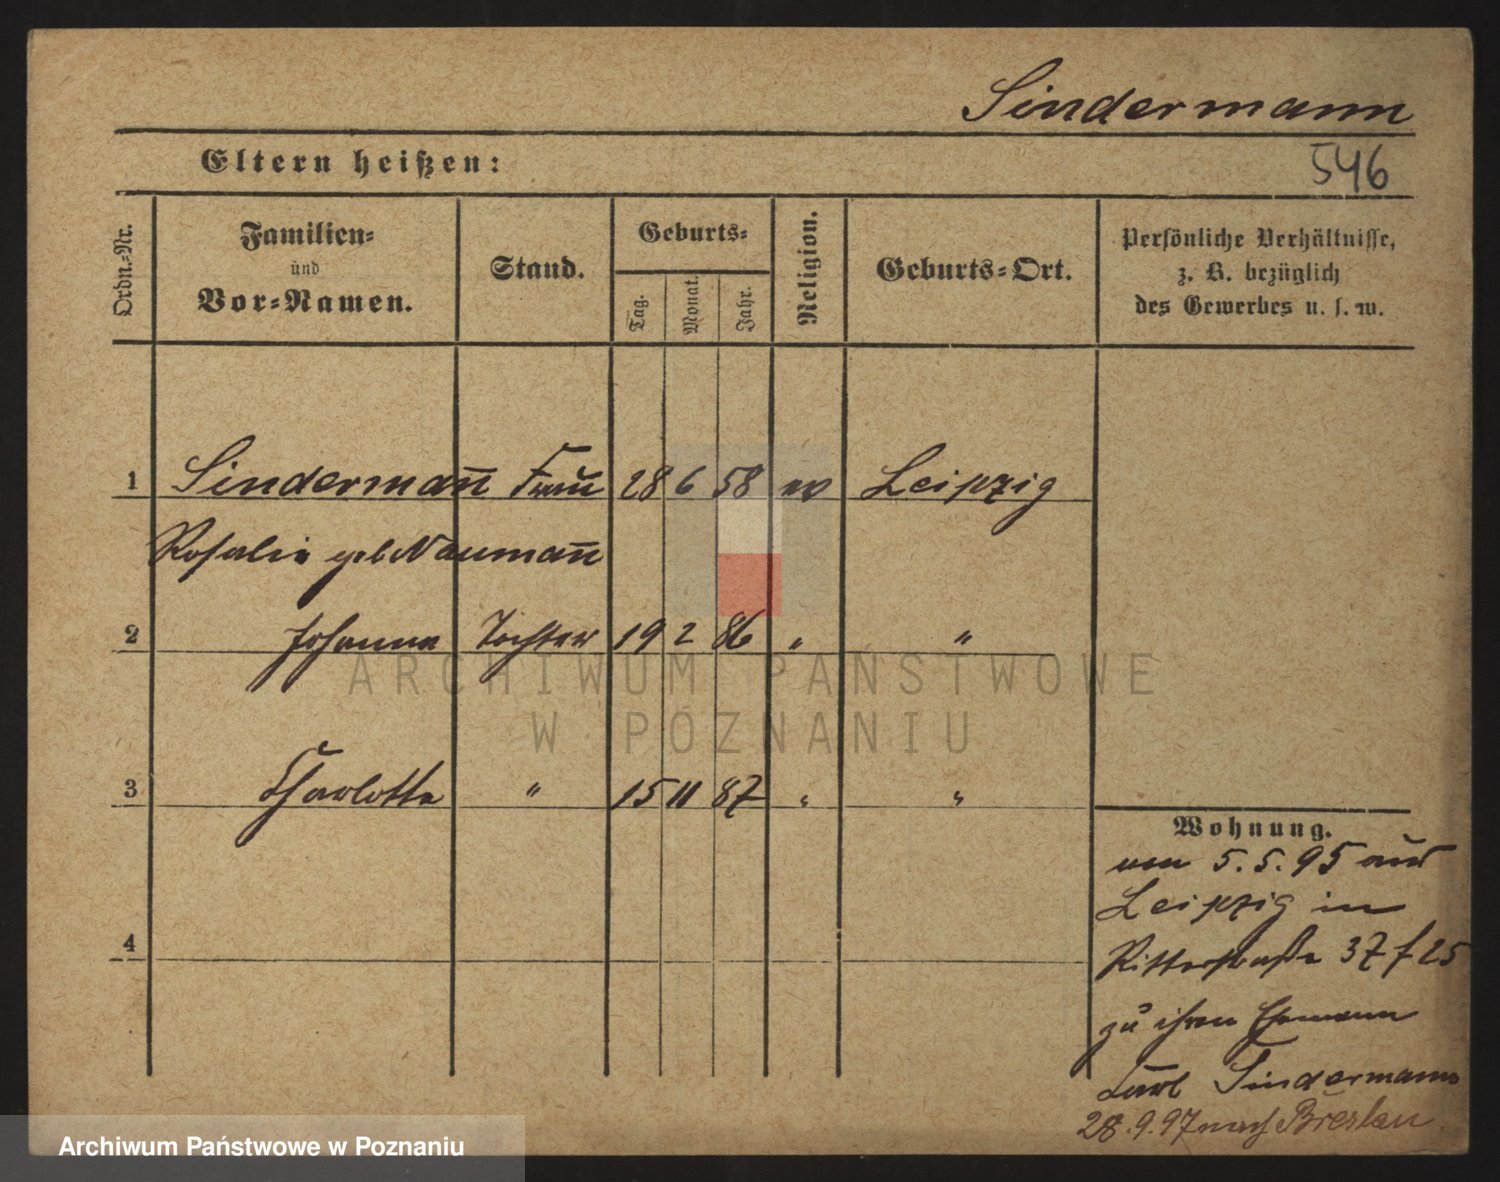 Sindermann
Eltern heißen:
546
Ordn.-Nr.
Familien-
und
Vor-Namen.
Stand.
Geburts-
Tag.
Monat.
Jahr.
Religion.
Geburts-Ort.
Persönliche Verhältnisse,
z. B. bezüglich
des Gewerbes u. s. w.
1 Sinderman̄ Frau 28 6 58 ev Leipzig
Rosalie geb Nauman̄
2 Johanna Tochter 19 2 86 " "
3 Charlotte " 15 11 87 " "
4
Wohnung.
von 5.5.95 aus
Leipzig in
Ritterstraße 37 f 25
zu ihren Ehemann
Carl Sindermann
28.9.97 nach Breslau
ARCHIWUM PAŃSTWOWE
W POZNANIU
Archiwum Państwowe w Poznaniu